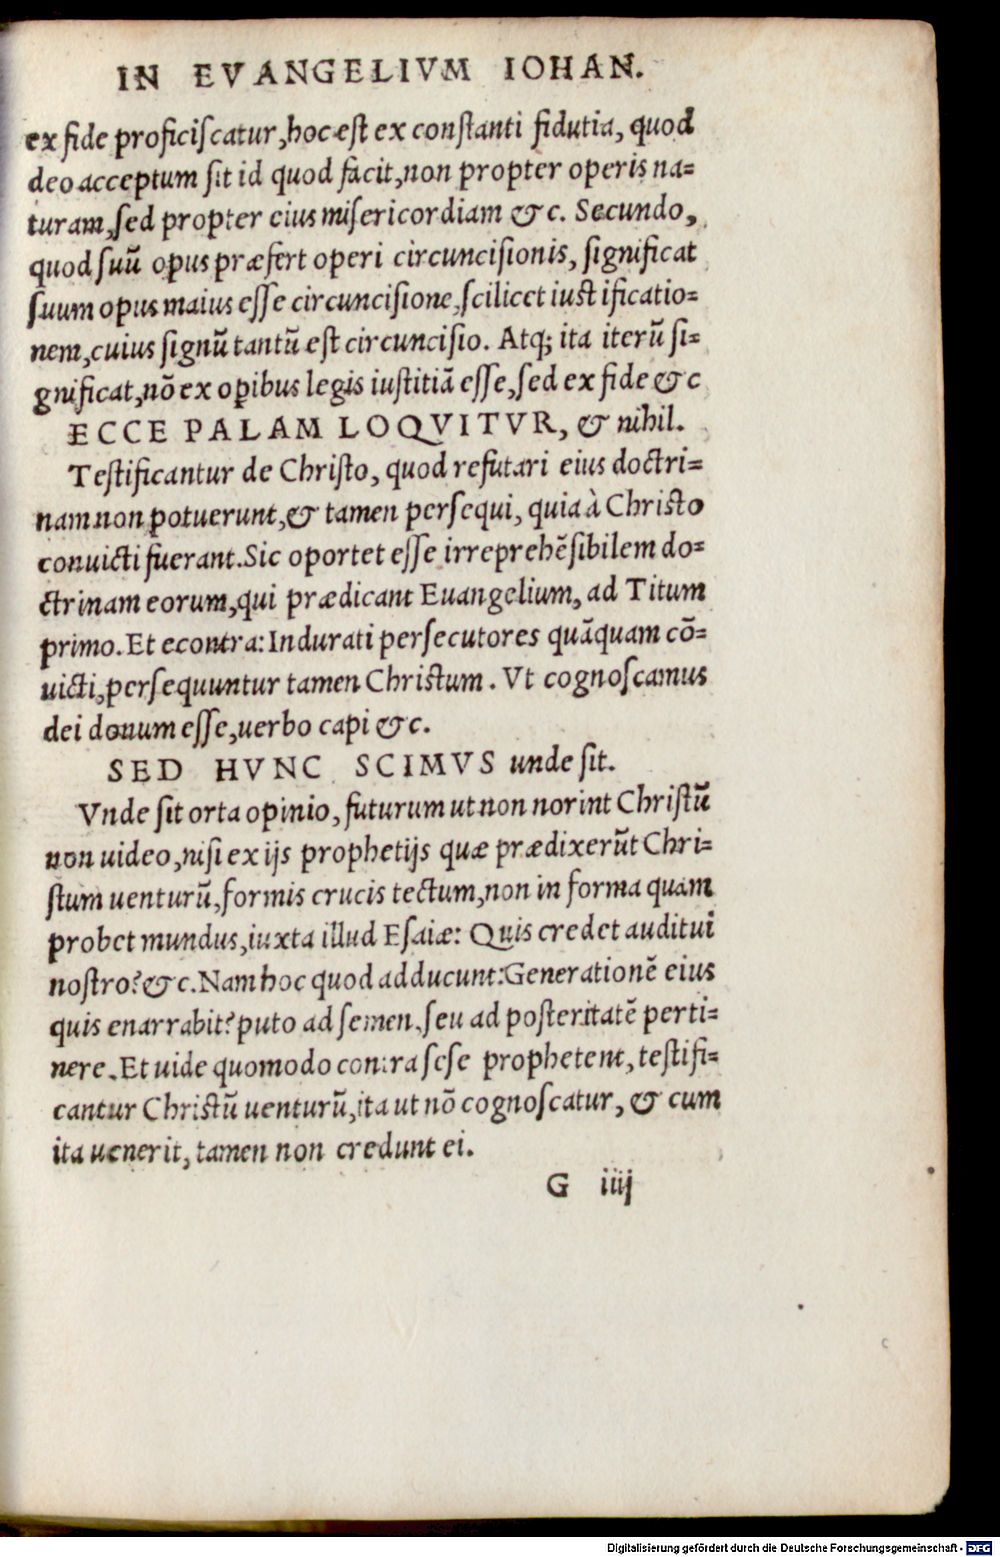 IN EVANGELIVM IOHAN.
ex fide proficiſcatur, hoc eſt ex conſtanti fidutia, quod
deo acceptum ſit id quod facit, non propter operis na=
turam, ſed propter eius miſericordiam & c. Secundo,
quod ſuũ opus præfert operi circunciſionis, ſignificat
ſuum opus maius eſſe circunciſione, ſcilicet iuſtificatio=
nem, cuius ſignũ tantũ eſt circunciſio. Atq; ita iterũ ſi=
gnificat, nõ ex oꝑibus legis iuſtitiã eſſe, ſed ex fide & c
ECCE PALAM LOQVITVR, & nihil.
Teſtificantur de Chriſto, quod refutari eius doctri=
nam non potuerunt, & tamen perſequi, quia à Chriſto
conuicti fuerant. Sic oportet eſſe irreprehẽſibilem do=
ctrinam eorum, qui prædicant Euangelium, ad Titum
primo. Et econtra: Indurati perſecutores quãquam cõ=
uicti, perſequuntur tamen Chriſtum. Vt cognoſcamus
dei donum eſſe, uerbo capi & c.
SED HVNC SCIMVS unde ſit.
Vnde ſit orta opinio, futurum ut non norint Chriſtũ
non uideo, niſi ex ijs prophetijs quæ prædixerũt Chri=
ſtum uenturũ, formis crucis tectum, non in forma quam
probet mundus, iuxta illud Eſaiæ: Quis credet auditui
noſtro? & c. Nam hoc quod adducunt: Generationẽ eius
quis enarrabit? puto ad ſemen, ſeu ad poſteritatẽ perti=
nere. Et uide quomodo contra ſeſe prophetent, teſtifi=
cantur Chriſtũ uenturũ, ita ut nõ cognoſcatur, & cum
ita uenerit, tamen non credunt ei.
G iiij
Digitalisierung gefördert durch die Deutsche Forschungsgemeinschaft - DFG